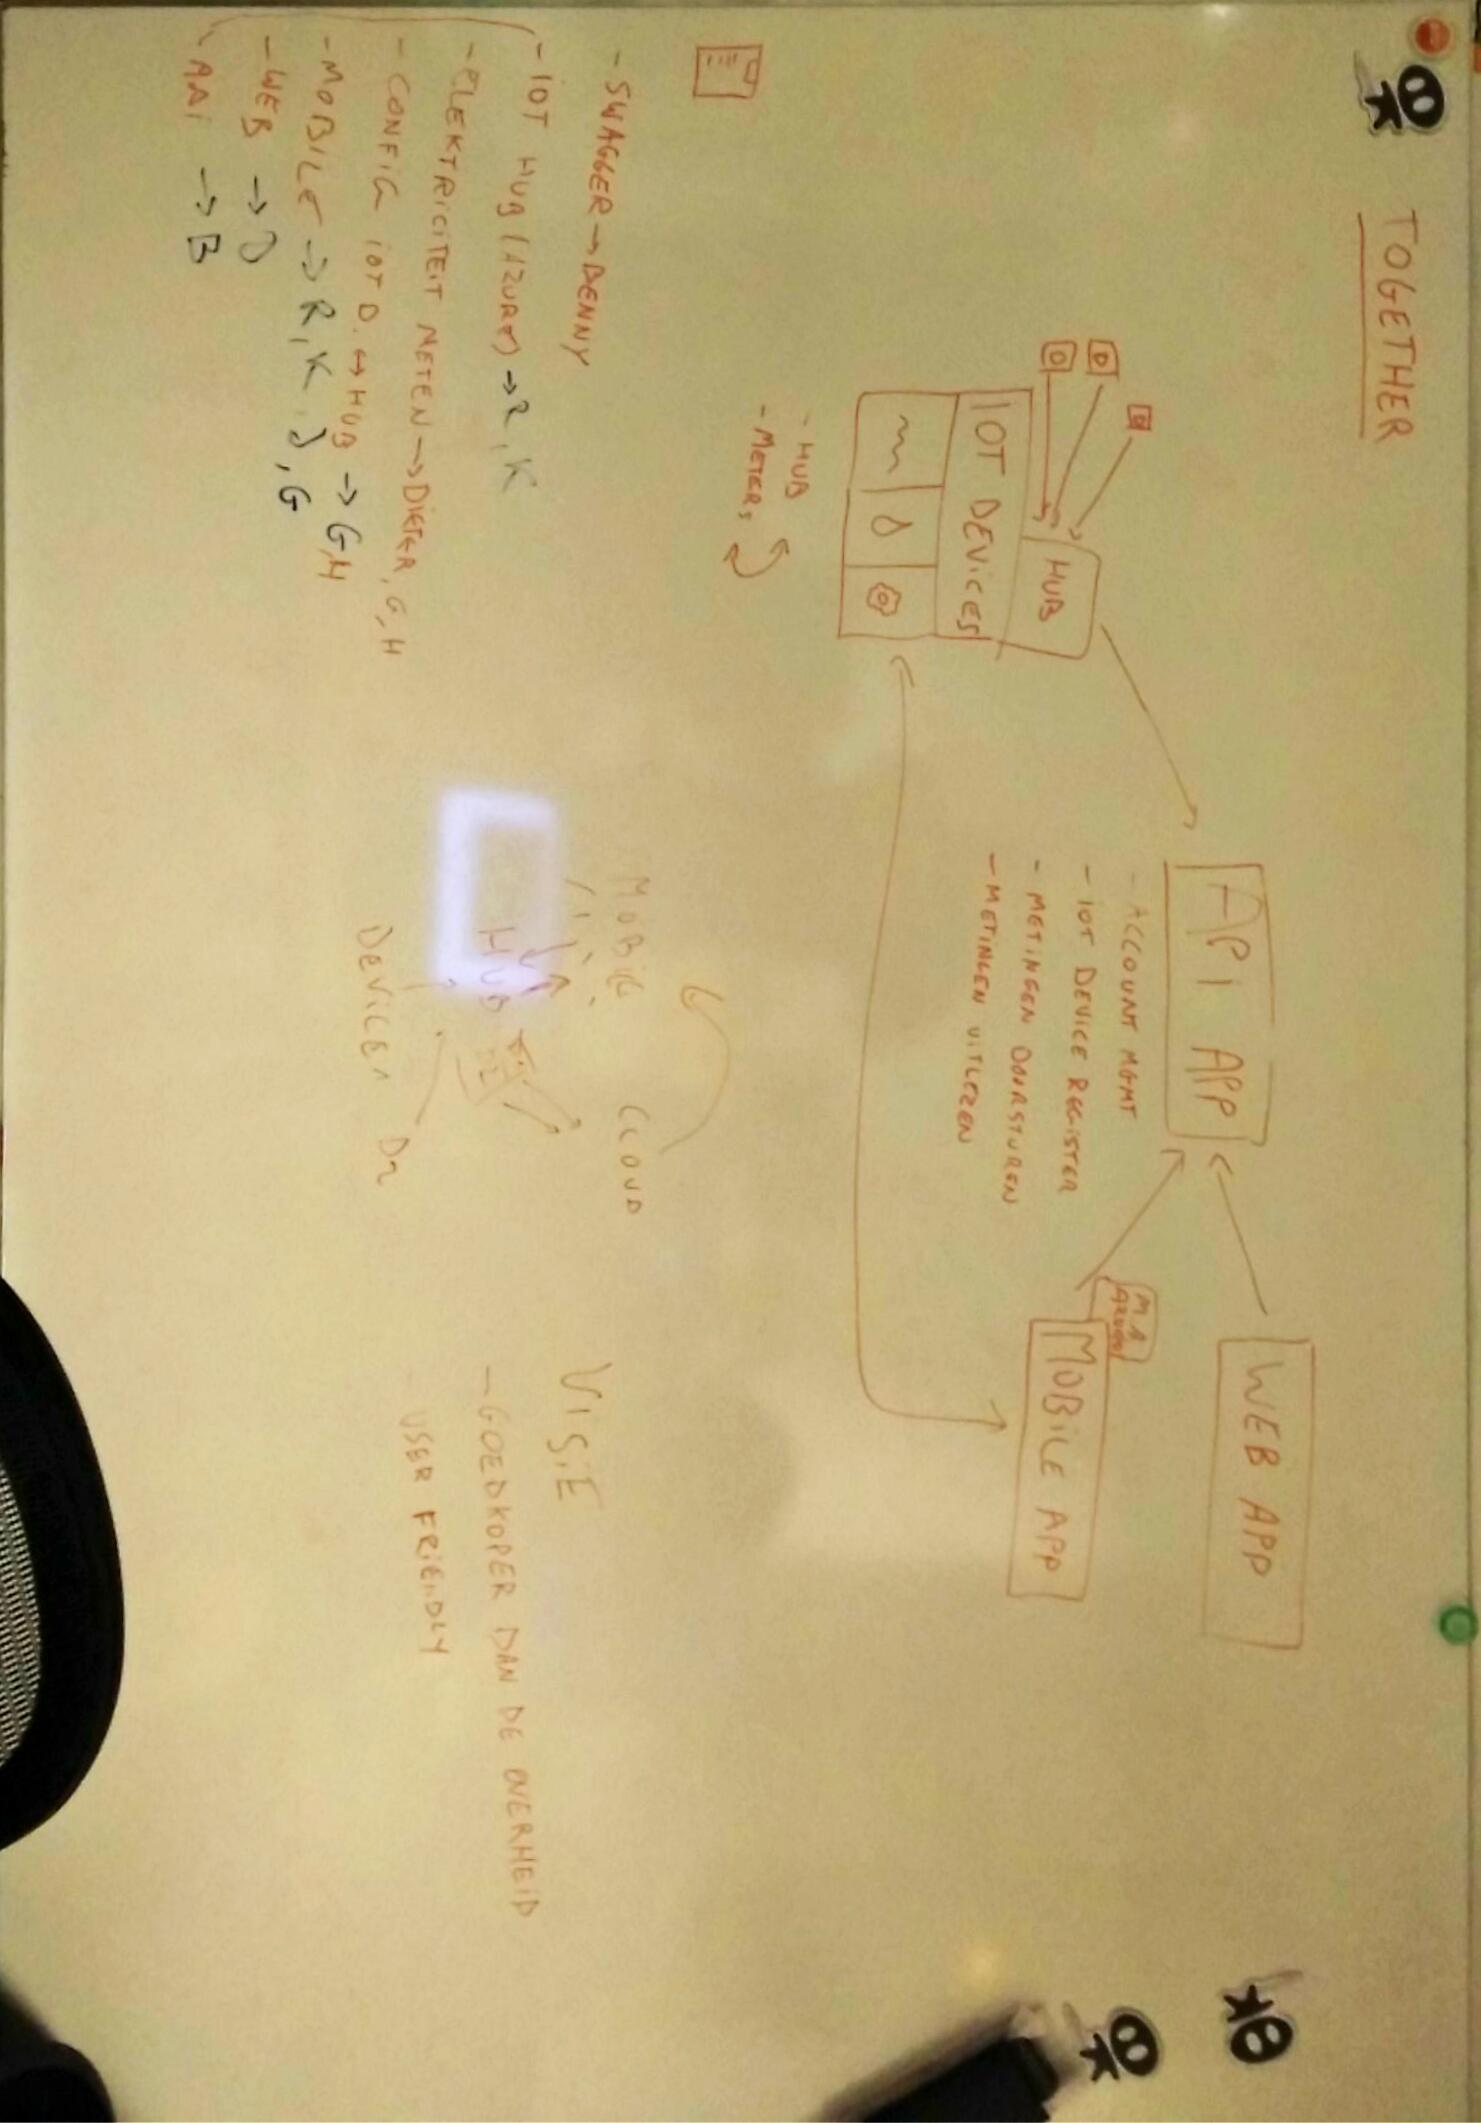 TOGETHER
WEB APP
API APP
M A
MOBILE APP
- ACCOUNT MGMT
- IOT DEVICE REGISTER
- METINGEN DOORSTUREN
- METINGEN UITLEZEN
D
D
D
HUB
IOT DEVICES
- HUB
- METERS
- SWAGGER → DENNY
- IOT HUB (AZURE) → R, K
- ELEKTRICITEIT METEN → DIETER, G, H
- CONFIG IOT D. ↔ HUB → G, H
- MOBILE → R, K, D, G
- WEB → D
- API → B
MOBILE
CLOUD
HUB
DEVICE 1
D2
VISIE
- GOEDKOPER DAN DE OVERHEID
- USER FRIENDLY
OK
OK
OK